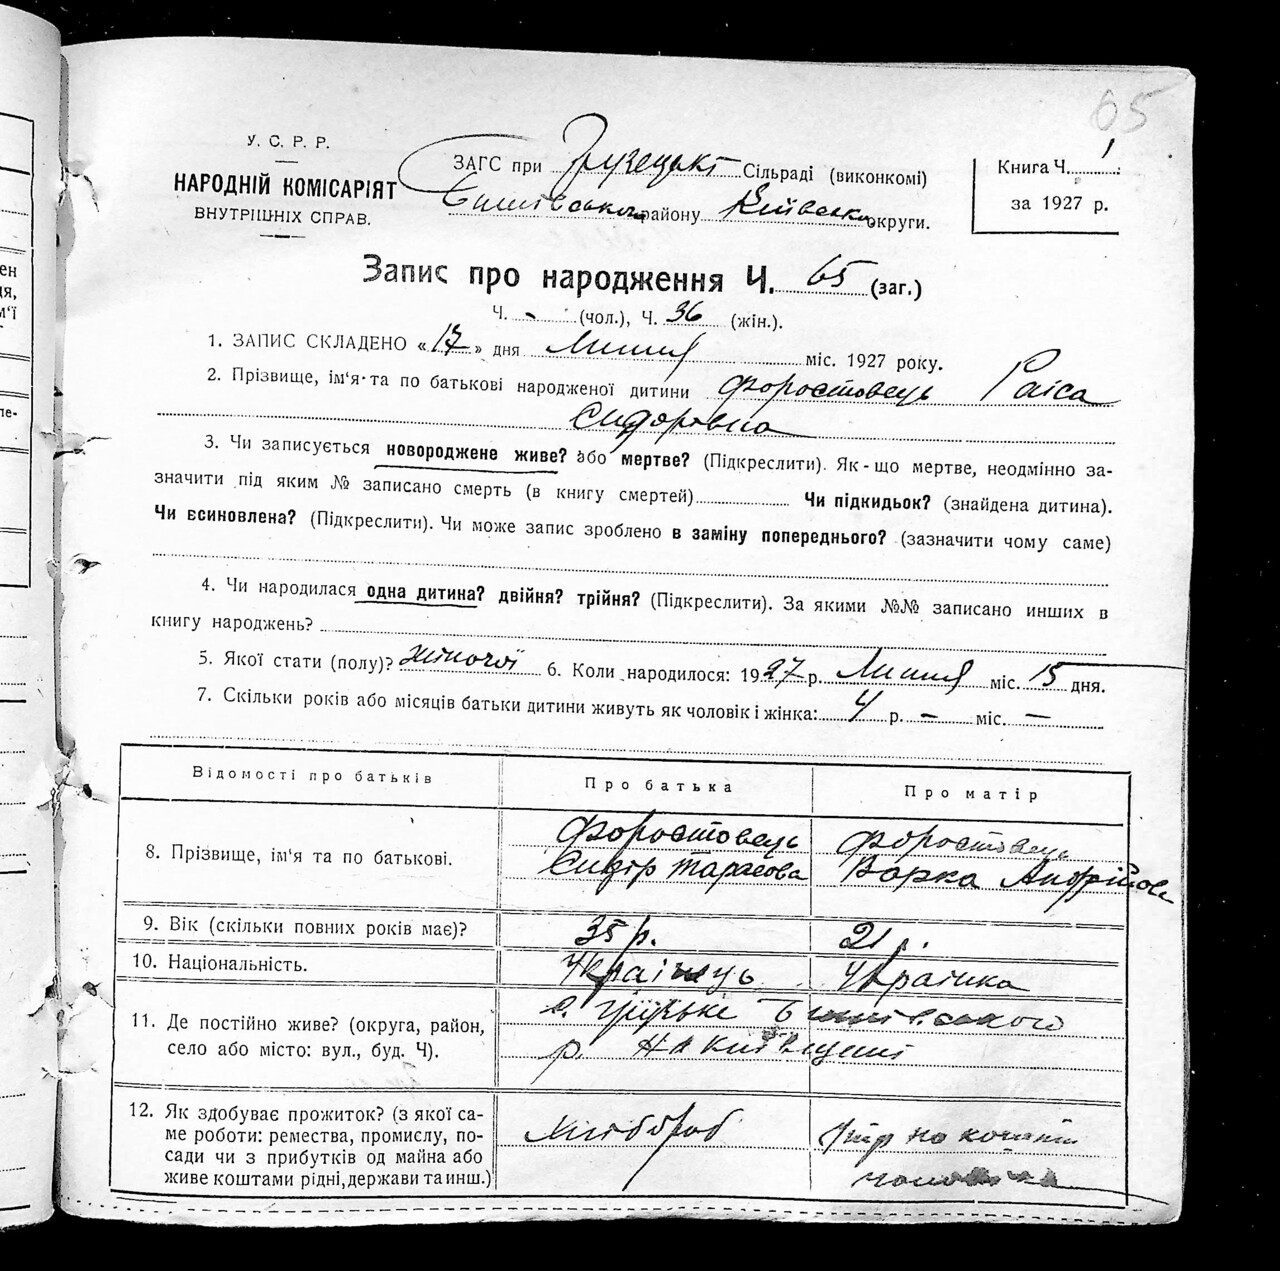 65
У. С. Р. Р.
НАРОДНІЙ КОМІСАРІЯТ
ВНУТРІШНІХ СПРАВ.
ЗАГС при Грузецькі Сільраді (виконкомі)
Бишівського району Київсько округи.
Книга Ч. 1
за 1927 р.
Запис про народження Ч. 65 (заг.)
Ч. - (чол.), Ч. 36 (жін.).
1. ЗАПИС СКЛАДЕНО «17» дня Липня міс. 1927 року.
2. Прізвище, ім'я та по батькові народженої дитини Форостовець Раіса
Сидоровна
3. Чи записується новороджене живе? або мертве? (Підкреслити). Як-що мертве, неодмінно за-
значити під яким № записано смерть (в книгу смертей) Чи підкидьок? (знайдена дитина).
Чи всиновлена? (Підкреслити). Чи може запис зроблено в заміну попереднього? (зазначити чому саме)
4. Чи народилася одна дитина? двійня? трійня? (Підкреслити). За якими №№ записано инших в
книгу народжень?
5. Якої стати (полу)? жіночої 6. Коли народилося: 1927 р. Липня міс. 15 дня.
7. Скільки років або місяців батьки дитини живуть як чоловік і жінка: 4 р. — міс. —
Відомості про батьків Про батька Про матір
8. Прізвище, ім'я та по батькові.
Форостовець Форостовець
Сидір Тарасова Варка Андрійов
9. Вік (скільки повних років має)? 35 р. 21 р.
10. Національність. Українець Українка
11. Де постійно живе? (округа, район,
село або місто: вул., буд. Ч).
с. Грузьке Бишівського
р. на Київщині
12. Як здобуває прожиток? (з якої са-
ме роботи: ремества, промислу, по-
сади чи з прибутків од майна або
живе коштами рідні, держави та инш.)
Хлібороб
на кошти
чоловіка